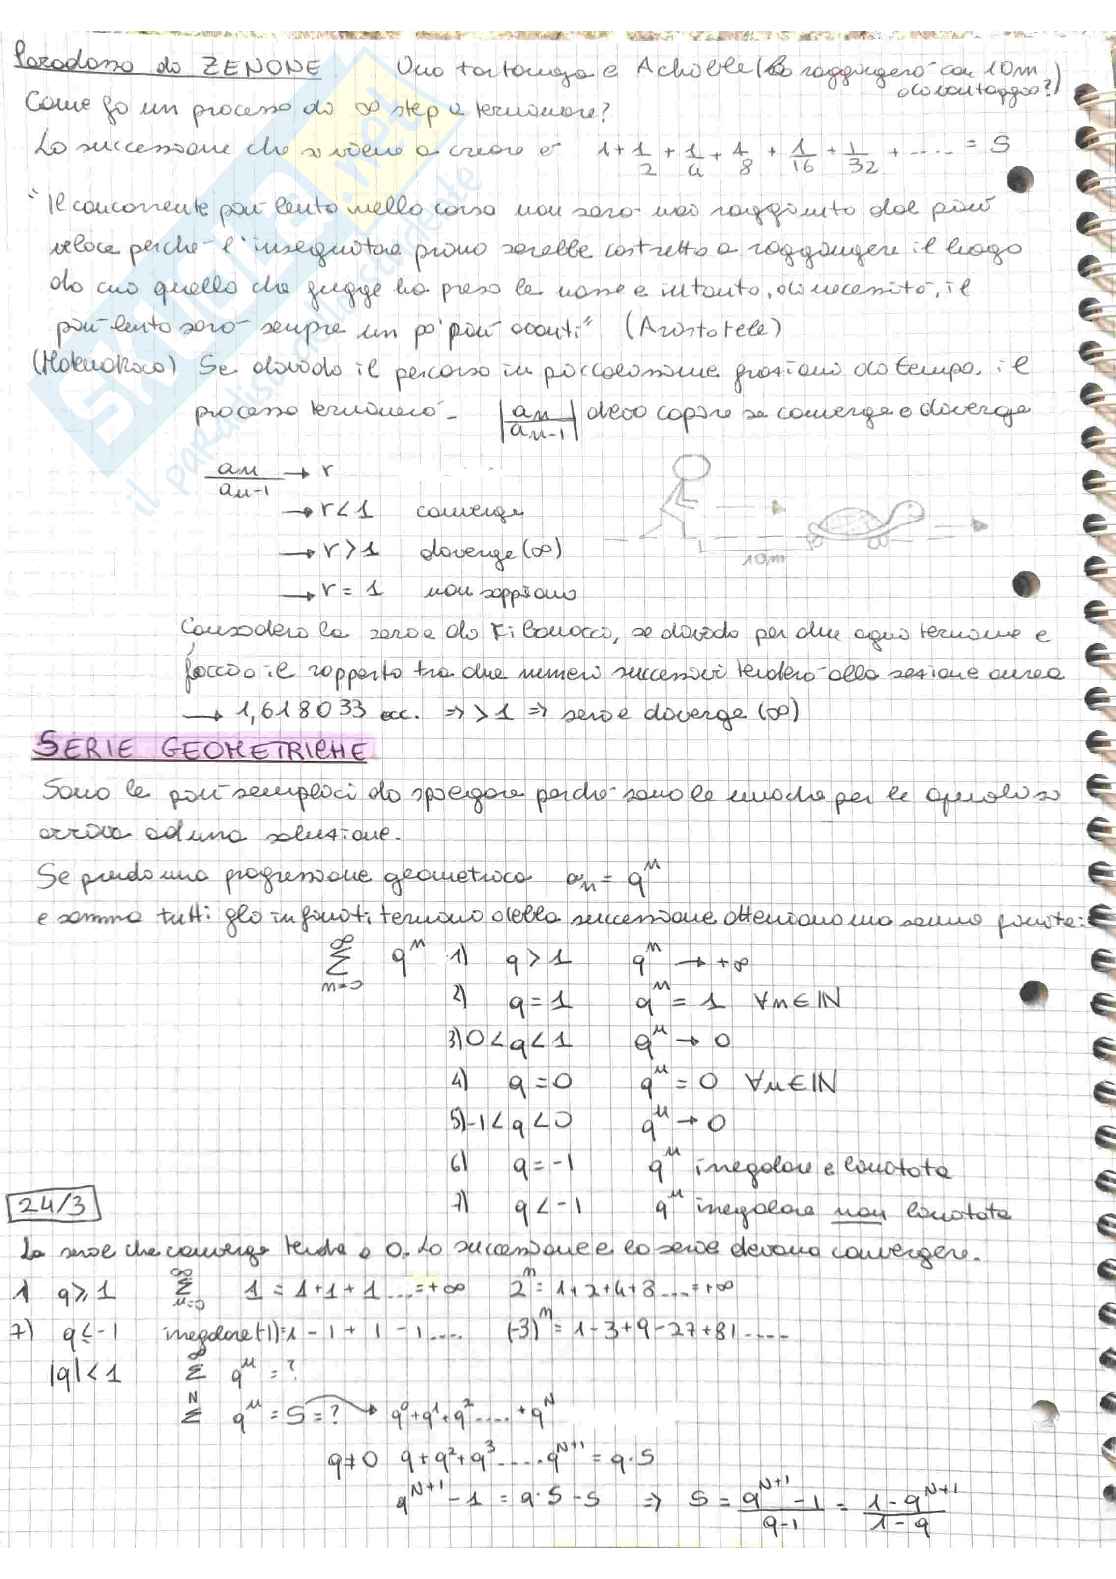 Paradosso di ZENONE Una tartaruga e Achille (lo raggiungerò con 10m di vantaggio?)
Come fa un processo di ∞ step a terminare?
La successione che si viene a creare è 1 + 1/2 + 1/4 + 1/8 + 1/16 + 1/32 + ..... = S
"Il concorrente più lento nella corsa non sarà mai raggiunto dal più
veloce perché l'inseguitore prima sarebbe costretto a raggiungere il luogo
da cui quello che fugge ha preso le mosse e intanto, di necessità, il
più lento sarà sempre un po' più avanti" (Aristotele)
Se divido il percorso in piccolissime frazioni di tempo, il
processo terminerà. |an/an-1| devo capire se converge e diverge
an/an-1 → r
→ r < 1 converge
→ r > 1 diverge (∞)
→ r = 1 non sappiamo
10m
Considero la serie di Fibonacci, se divido per due ogni termine e
faccio il rapporto tra due numeri successivi tenderò alla sezione aurea
→ 1,618033 ecc. => > 1 => serie diverge (∞)
SERIE GEOMETRICHE
Sono le più semplici da spiegare perché sono le uniche per le quali si
arriva ad una soluzione.
Se prendo una progressione geometrica an = q^n
e sommo tutti gli infiniti termini della successione otteniamo una somma finita:
∞ Σ n=0 q^n 1) q > 1 q^n → +∞
2) q = 1 q^n = 1 ∀n∈IN
3) 0 < q < 1 q^n → 0
4) q = 0 q^n = 0 ∀n∈IN
5) -1 < q < 0 q^n → 0
6) q = -1 q^n irregolare e limitata
7) q < -1 q^n irregolare non limitata
24/3
La serie che converge tende a 0. La successione e la serie devono convergere.
1 q ⩾ 1 ∞ Σ n=0 1 = 1+1+1 ... = +∞ 2^n = 1+2+4+8 .... = +∞
7) q ≤ -1 irregolare (-1) = 1 - 1 + 1 - 1 .... (-3)^n = 1 - 3 + 9 - 27 + 81 .....
|q| < 1 ∞ Σ q^n = ?
N Σ q^n = S = ? → q^0 + q^1 + q^2 ..... + q^N
q ≠ 0 q + q^2 + q^3 ..... q^N+1 = q · S
q^N+1 - 1 = q · S - S => S = q^N+1 - 1 / q-1 = 1 - q^N+1 / 1 - q
SKUOLA.net
il paradiso dello studente